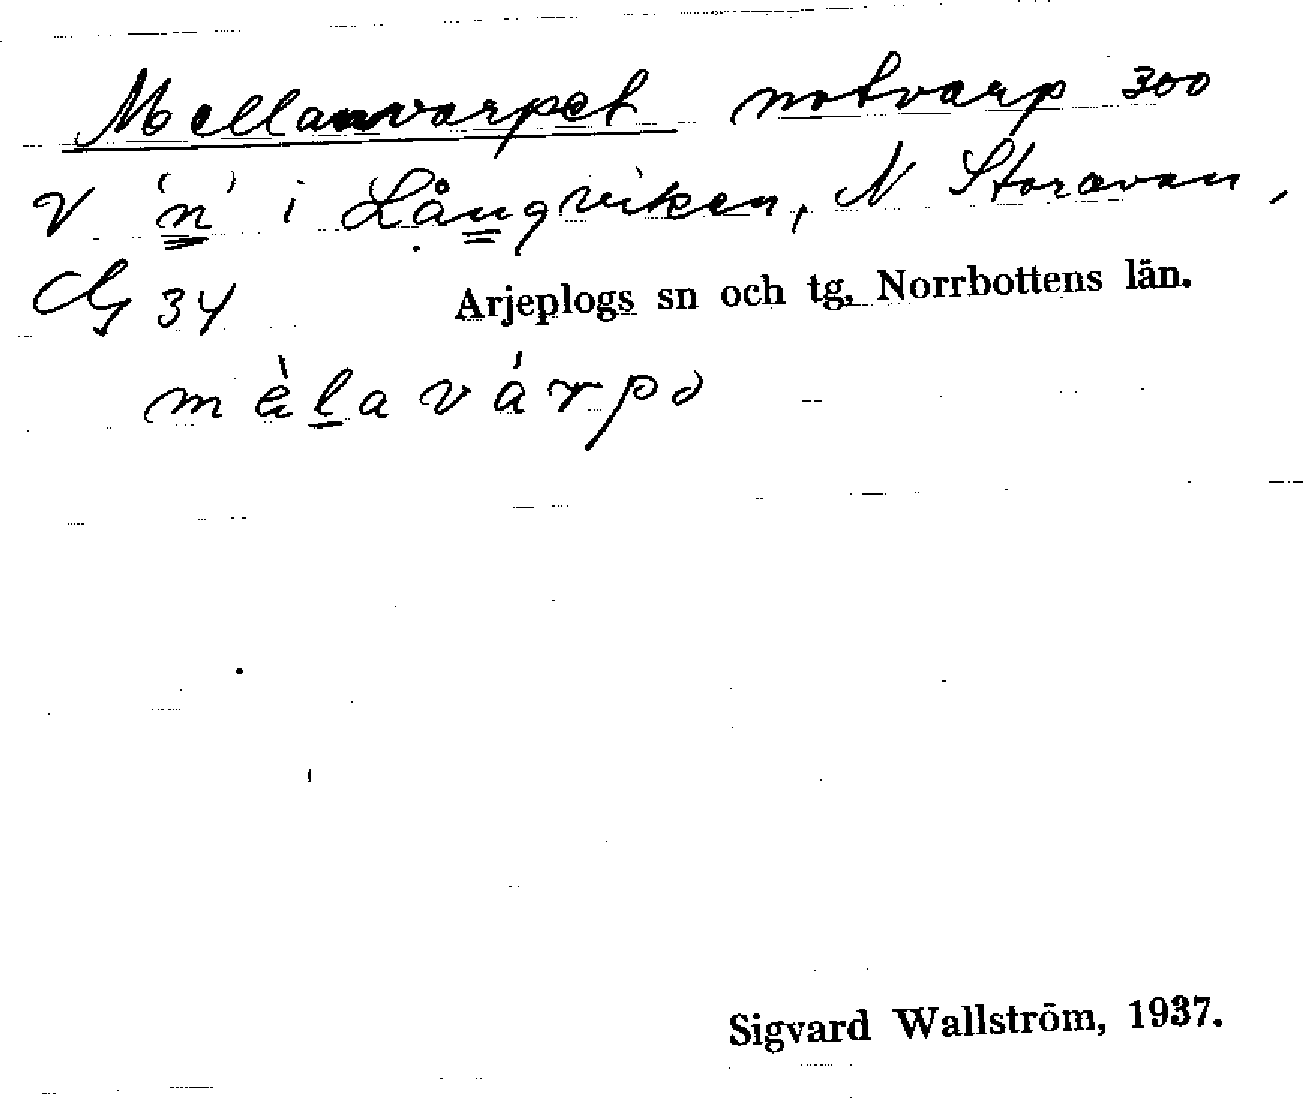 Mellanvarpet notvarp 300
V 'n' i Långviken, N Storavan,
CG 34 Arjeplogs sn och tg, Norrbottens län.
mèlavárpə
Sigvard Wallström, 1937.